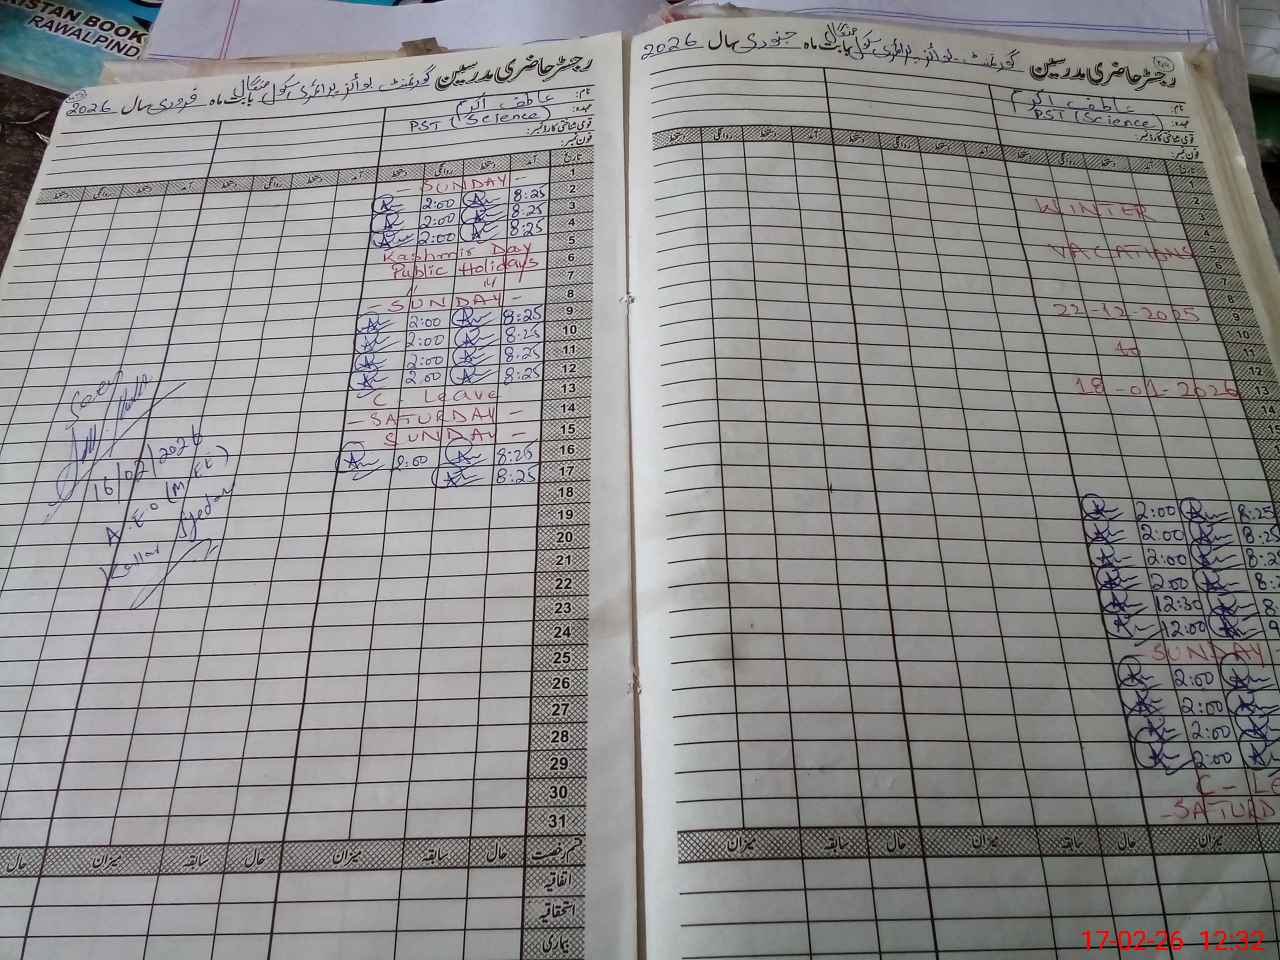 ISTAN BOOK
RAWALPIND
رجسٹر حاضری مدرسین گورنمنٹ بوائز پرائمری سکول منگال بابت ماہ فروری سال 2026
نام: عاطف اکرم
عہدہ: PST (Science)
قومی شناختی کارڈ نمبر:
فون نمبر:
تاریخ آمد دستخط روانگی دستخط آمد دستخط روانگی دستخط آمد دستخط روانگی دستخط
1 - SUNDAY -
2 8:25 2:00
3 8:25 2:00
4 8:25 2:00
5 Kashmir Day
6 Public Holidays
7 " "
8 - SUNDAY -
9 8:25 2:00
10 8:25 2:00
11 8:25 2:00
12 8:25 2:00
13 C. Leave
14 - SATURDAY -
15 SUNDAY -
16 8:25 2:00
17 8:25
18
19
20
21
22
23
24
25
26
27
28
29
30
31
16/02/2026
A.E.O (M-EE)
Kallar Syedan
قسم رخصت حال سابقہ میزان حال سابقہ میزان حال
اتفاقیہ
استحقاقیہ
بیماری
رجسٹر حاضری مدرسین گورنمنٹ بوائز پرائمری سکول منگال بابت ماہ جنوری سال 2026
نام: عاطف اکرم
عہدہ: PST (Science)
قومی شناختی کارڈ نمبر:
فون نمبر:
تاریخ آمد دستخط روانگی دستخط آمد دستخط روانگی دستخط آمد دستخط روانگی دستخط
1
2
3 WINTER
4
5 VACATIONS
6
7
8
9 22-12-2025
10
11 to
12
13 18-01-2026
14
15
8:25 2:00
8:25 2:00
8:2 2:00
8: 2:00
8 12:30
9 12:00
- SUNDAY -
2:00
2:00
2:00
2:00
C - LE
- SATURD
میزان حال سابقہ میزان حال سابقہ میزان
17-02-26 12:32